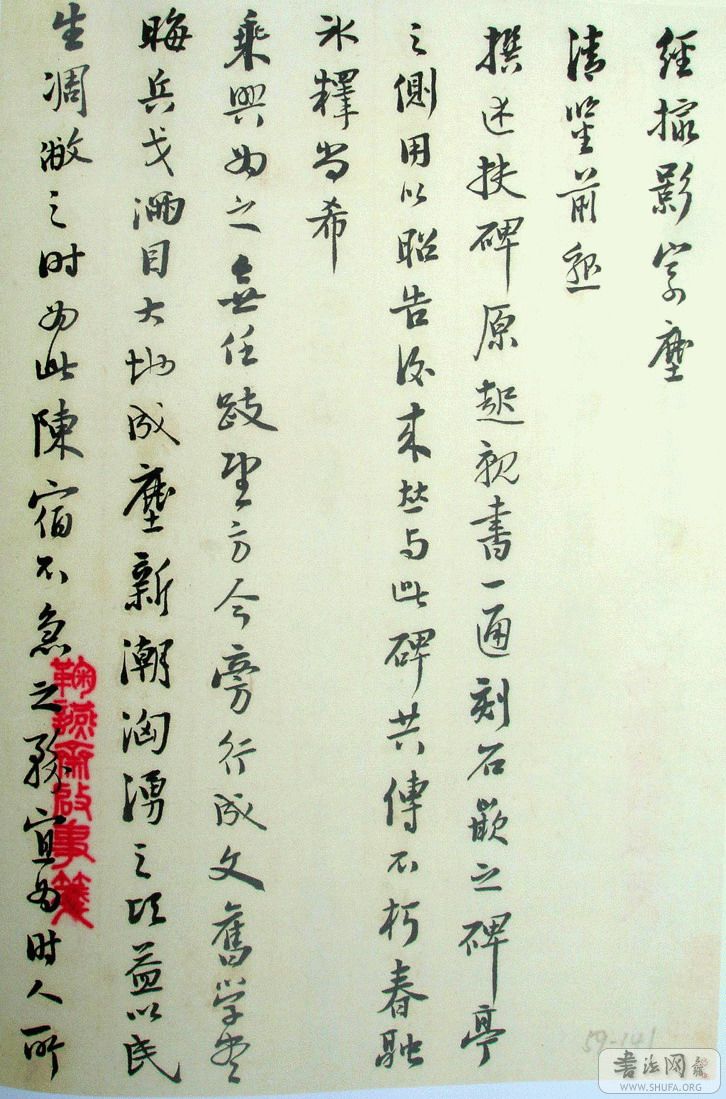 經攝影寄塵
清鑒前懇
撰述扶碑原起親書一通刻石嵌之碑亭
之側用以昭告後來並與此碑共傳不朽春融
冰釋尚希
乘興為之無任跂望方今旁行成文舊學
晦兵戈滿目大地成塵新潮洶湧之頃益以民
生凋敝之時為此陳宿不急之務宜為時人所
齋啟事箋
59-141
書法网
WWW.SHUFA.ORG